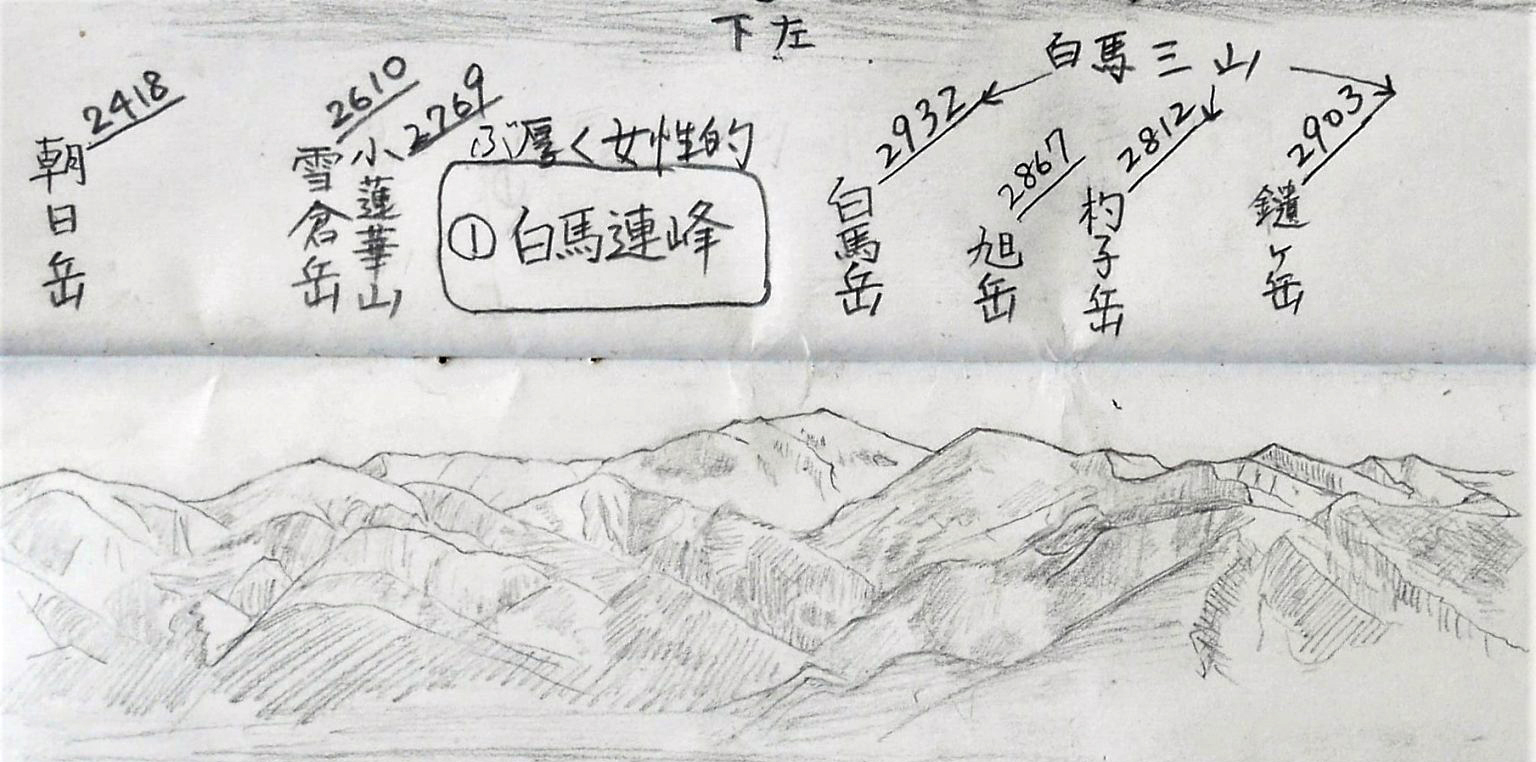 下左
白馬三山
2418
朝日岳
2610
雪倉岳
2769
小蓮華山
ぶ厚く女性的
① 白馬連峰
2932
白馬岳
2867
旭岳
2812
杓子岳
2903
鑓ヶ岳